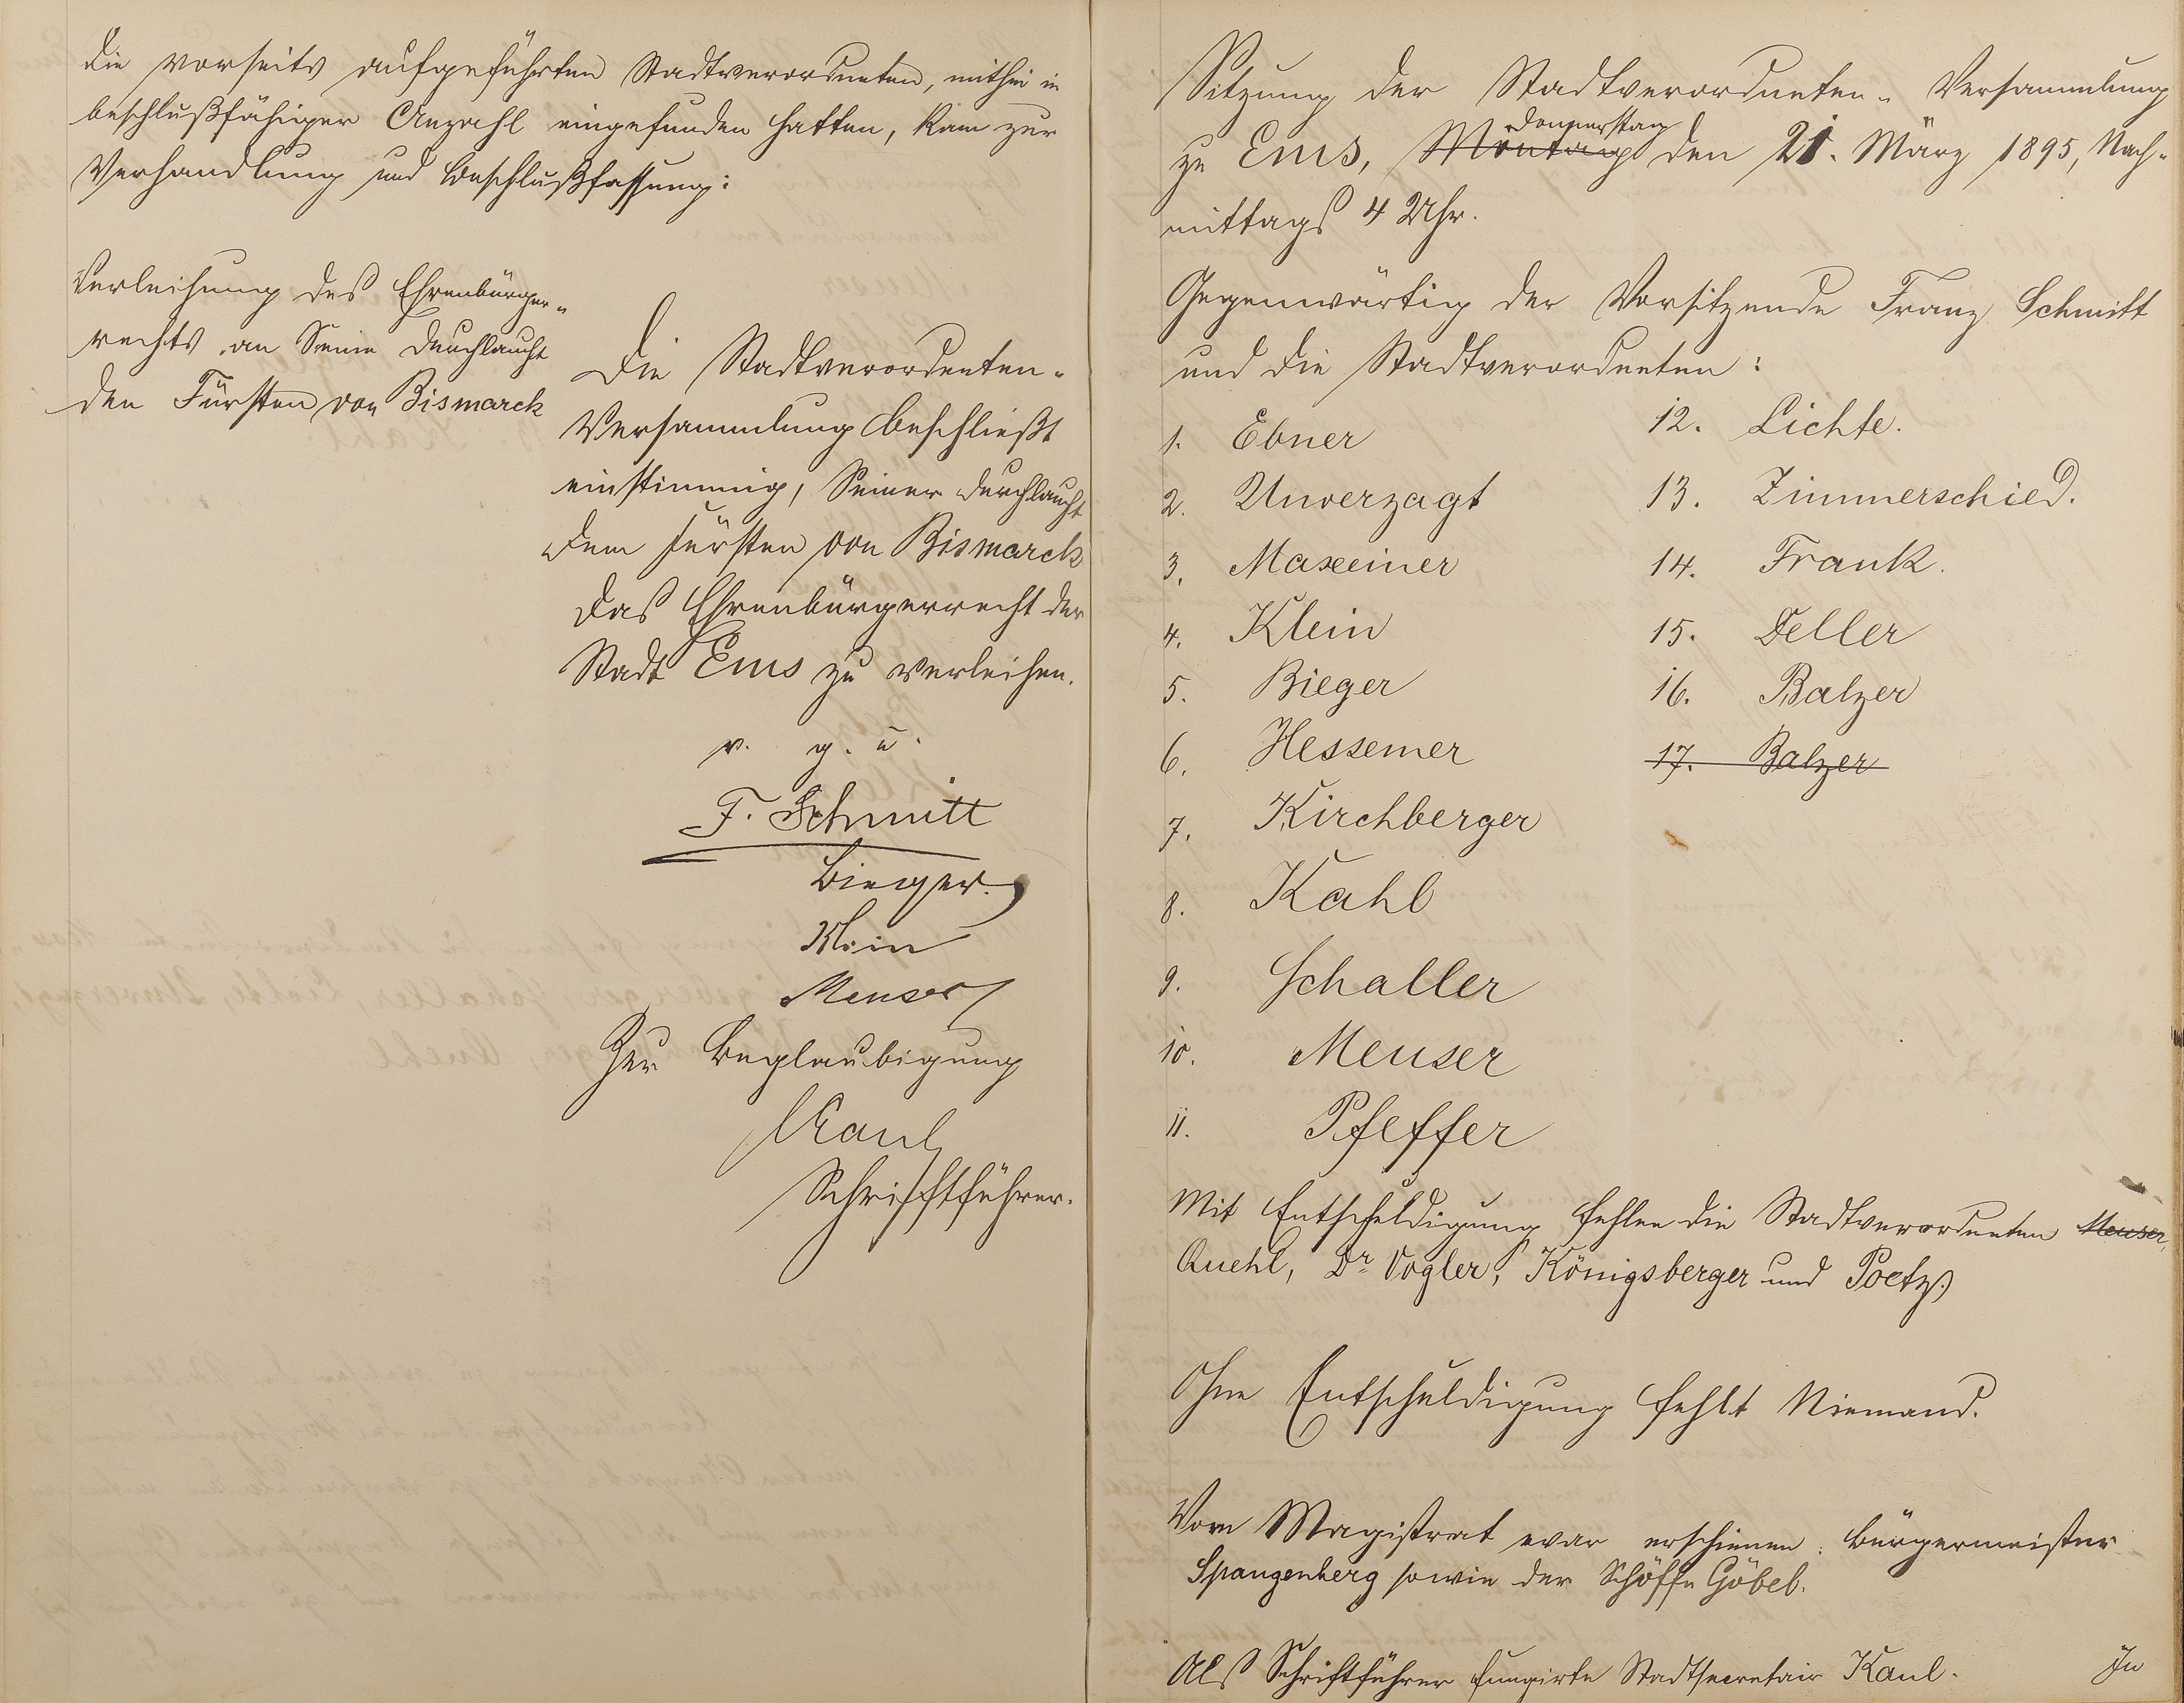 die vorseits aufgeführten Stadtverordneten, mithin in
beschlußfähiger Anzahl eingefunden hatten, kam zur
Verhandlung und Beschlußfassung:
Verleihung des Ehrenbürger-
rechts an Seine Durchlaucht
den Fürsten von Bismarck
Die Stadtverordneten-
Versammlung beschließt
einstimmig, Seiner Durchlaucht
dem Fürsten von Bismarck
das Ehrenbürgerrecht der
Stadt Ems zu verleihen.
v. g. u.
F. Schmitt
Bieger.
Klein
Meuser
Zur Beglaubigung
Kaul
Schriftführer.
Sitzung der Stadtverordneten-Versammlung
Donnerstag
zu Ems, Montag den 21. März 1895, Nach-
mittags 4 Uhr.
Gegenwärtig der Vorsitzende Franz Schmitt
und die Stadtverordneten:
1. Ebner
2. Unverzagt
3. Maxeiner
4. Klein
5. Bieger
6. Hessemer
7. Kirchberger
8. Kahl
9. Schaller
10. Meuser
11. Pfeffer
12. Lichte.
13. Zimmerschied.
14. Frank.
15. Deller
16. Balzer
17. Balzer
Mit Entschuldigung fehlen die Stadtverordneten Meuser,
Quehl, Dr Vogler, Königsberger und Poetz.
Ohne Entschuldigung fehlt Niemand.
Vom Magistrat war erschienen: Bürgermeister
Spangenberg sowie der Schöffe Göbel.
Als Schriftführer fungirte Stadtsecretair Kaul.
In